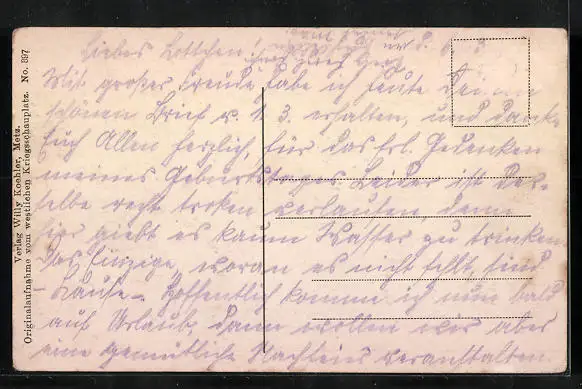 Liebes Lottchen!
Mit großer Freude habe ich heute Deinen
schönen Brief v. 1. 3. erhalten, und danke
Euch Allen herzlich, für das frl. Gedenken
meines Geburtstages. Leider ist der-
selbe recht troken verlaufen, denn
hier giebt es kaum Wasser zu trinken.
Das Einzige, woran es nicht fehlt, sind
- Läuse - Hoffentlich komm ich nun bald
auf Urlaub, dann wollen wir aber
eine gemütliche Nachfeier veranstalten.
Verlag Willy Koehler, Metz.
Originalaufnahme vom westlichen Kriegsschauplatz. No. 897